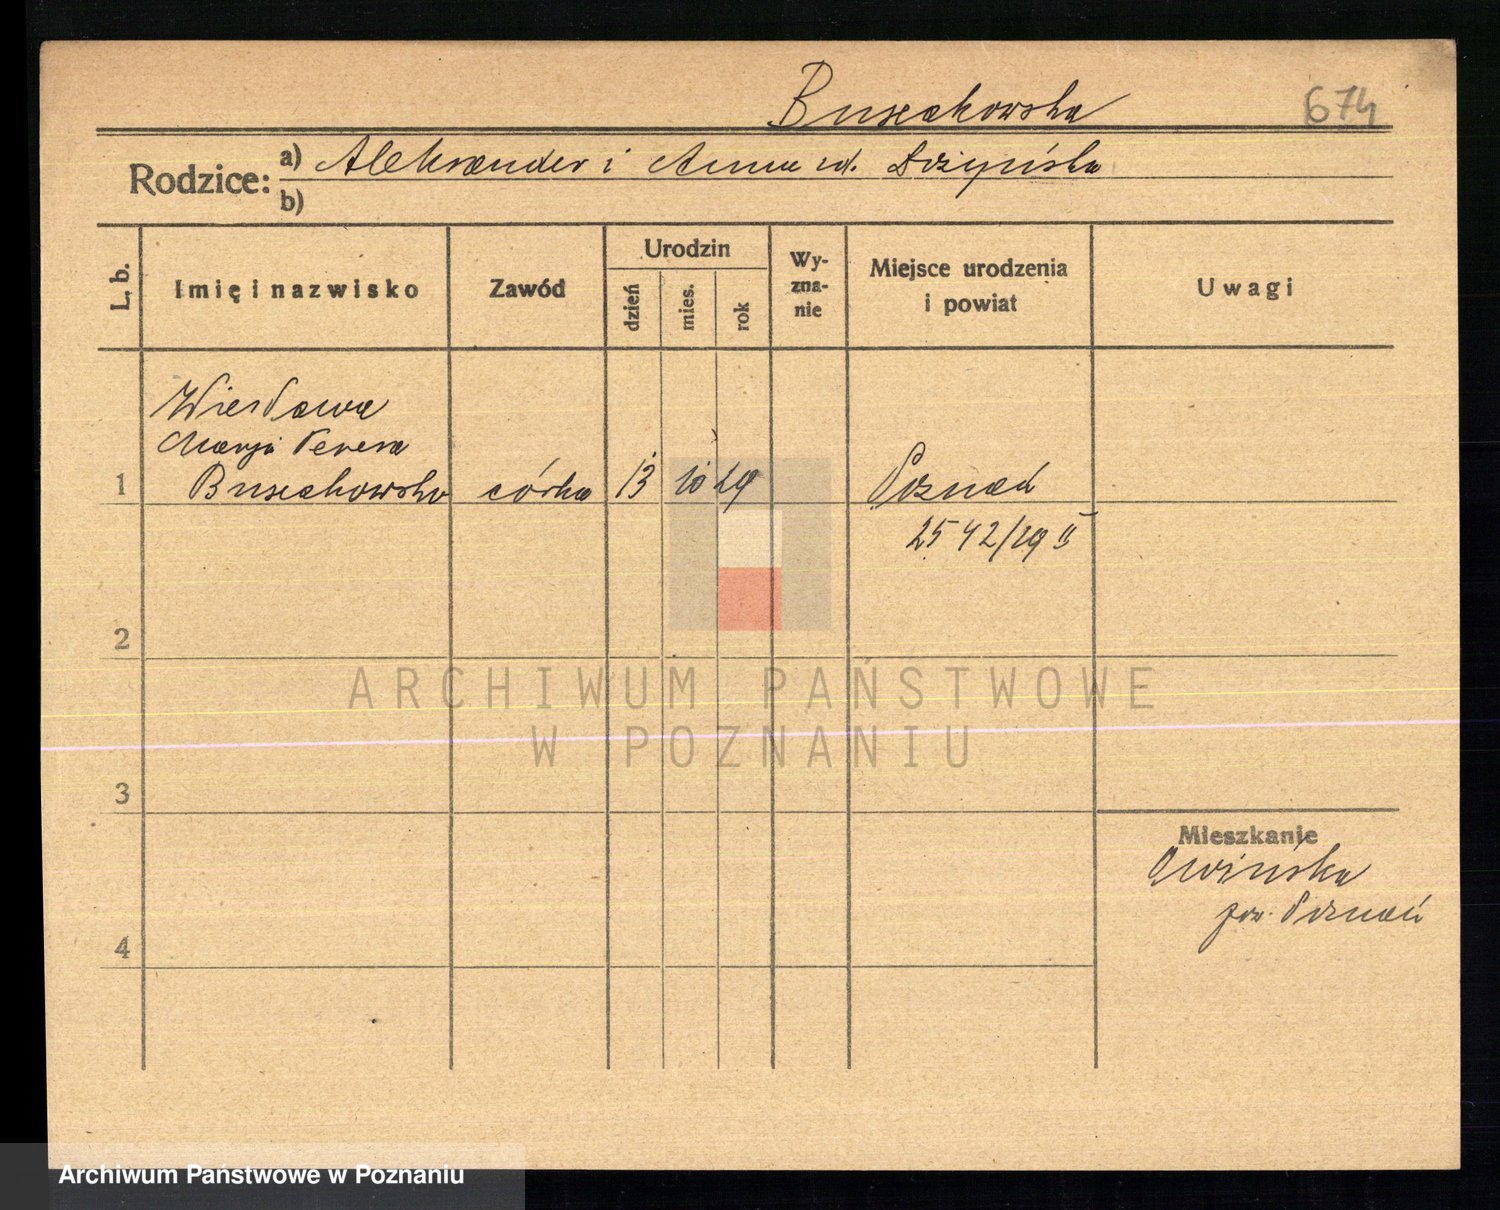 Buszakowska
674
Rodzice: a) Aleksander i Anna zd. Dożyńska
b)
L. b.
Imię i nazwisko
Zawód
Urodzin
dzień
mies.
rok
Wy-
zna-
nie
Miejsce urodzenia
i powiat
Uwagi
Wiesława
Marja Teresa
1 Buszakowska córka 13 10 29 Poznań
2542/29 II
2
3
4
Mieszkanie
Owińska
pow. Poznań
ARCHIWUM PAŃSTWOWE
W POZNANIU
Archiwum Państwowe w Poznaniu